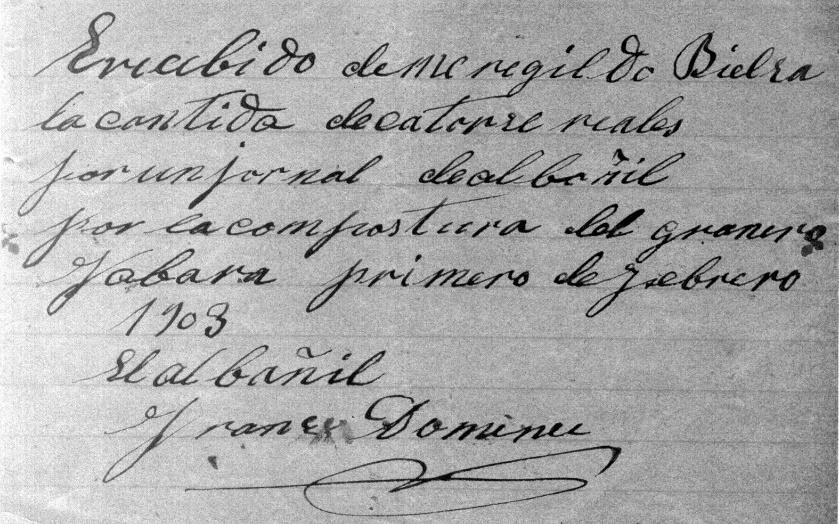 Erecibido demeregildo Bielsa
la cantida decatorze reales
por un jornal dealbañil
por lacompostura del granero
Fabara primero defebrero
1903
El albañil
Domenec